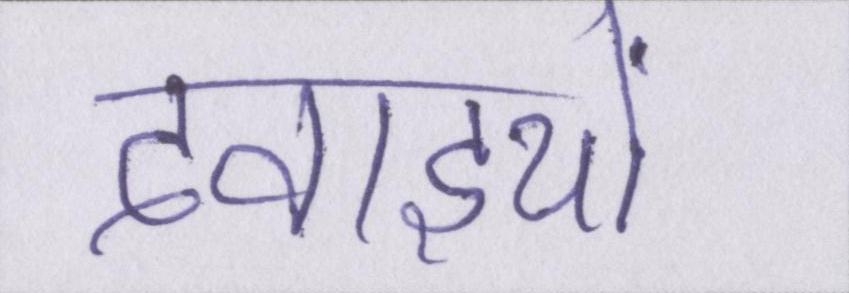 दवाइयों